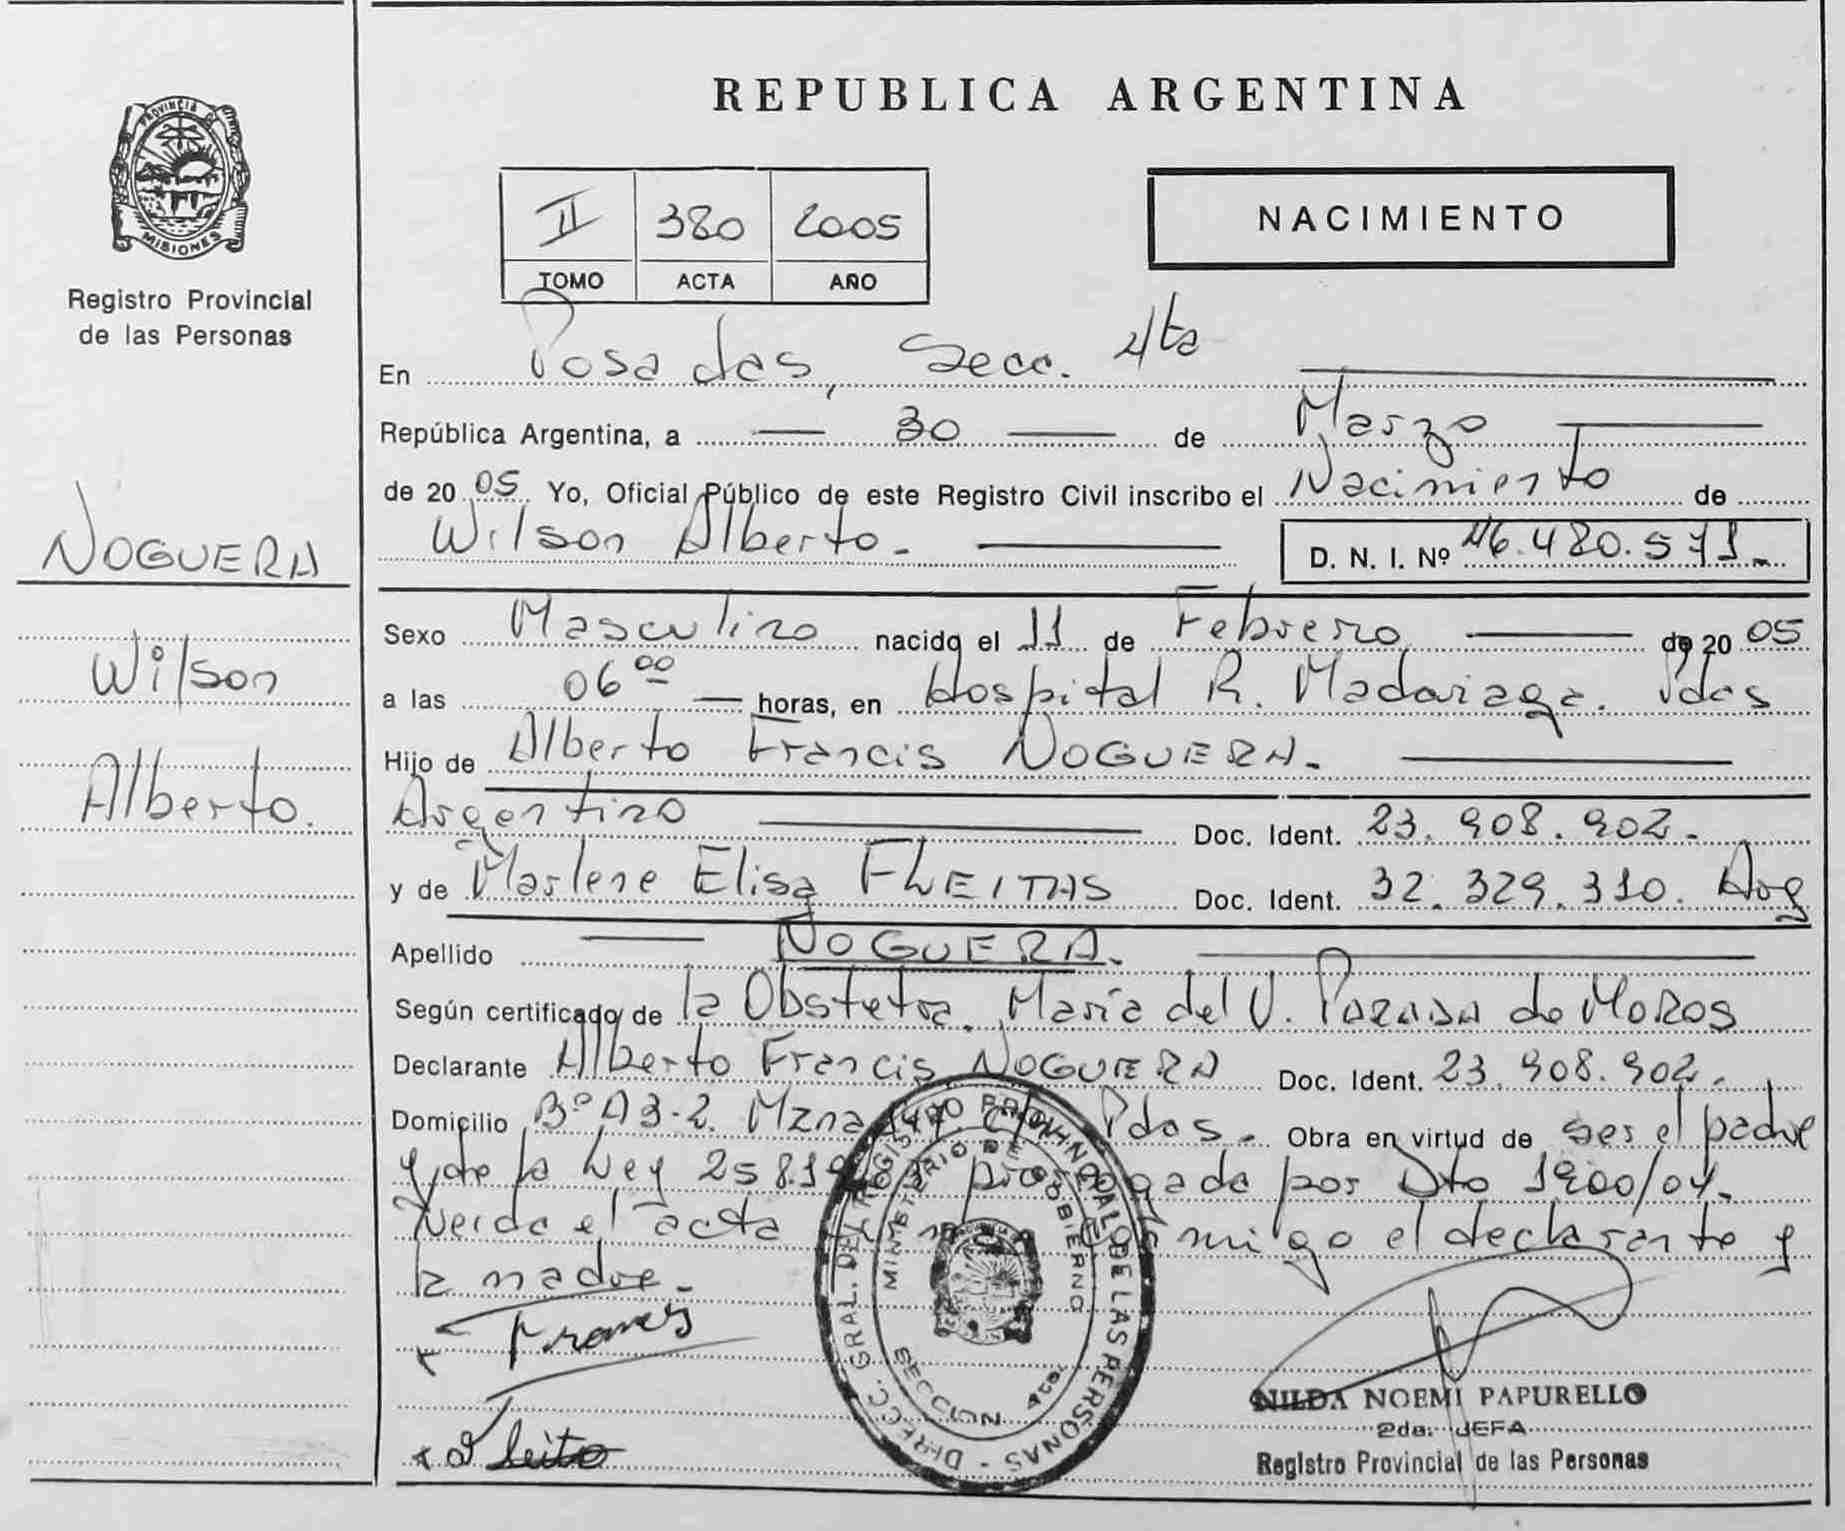 REPUBLICA ARGENTINA
PROVINCIA DE
MISIONES
Registro Provincial
de las Personas
NOGUERA
Wilson
Alberto.
II 380 2005
TOMO ACTA AÑO
NACIMIENTO
En Posadas, Secc. 4ta
República Argentina, a 30 de Marzo
de 2005 Yo, Oficial Público de este Registro Civil inscribo el Nacimiento de
Wilson Alberto.- D. N. I. Nº 46.480.571.-
Sexo Masculino nacido el 11 de Febrero de 2005
a las 06 00 horas, en Hospital R. Madariaga. Pdas
Hijo de Alberto Francis NOGUERA.-
Argentino Doc. Ident. 23.908.902.-
y de Marlene Elisa FLEITAS Doc. Ident. 32.329.310. Arg
Apellido NOGUERA.
Según certificado de la Obstetra. María del V. PARADA de MOROS
Declarante Alberto Francis NOGUERA Doc. Ident. 23.908.902.-
Domicilio Bº A3-2. Mzna Pdas.- Obra en virtud de ser el padre
y de la Ley 25.819 prorrogada por Dto 1900/04.
Leída el acta la firman conmigo el declarante y
la madre.-
DIRECC. GRAL. DEL REGISTRO PROVINCIAL DE LAS PERSONAS -
MINISTERIO DE GOBIERNO
SECCION 4ta.
NILDA NOEMI PAPURELLO
2da. JEFA
Registro Provincial de las Personas